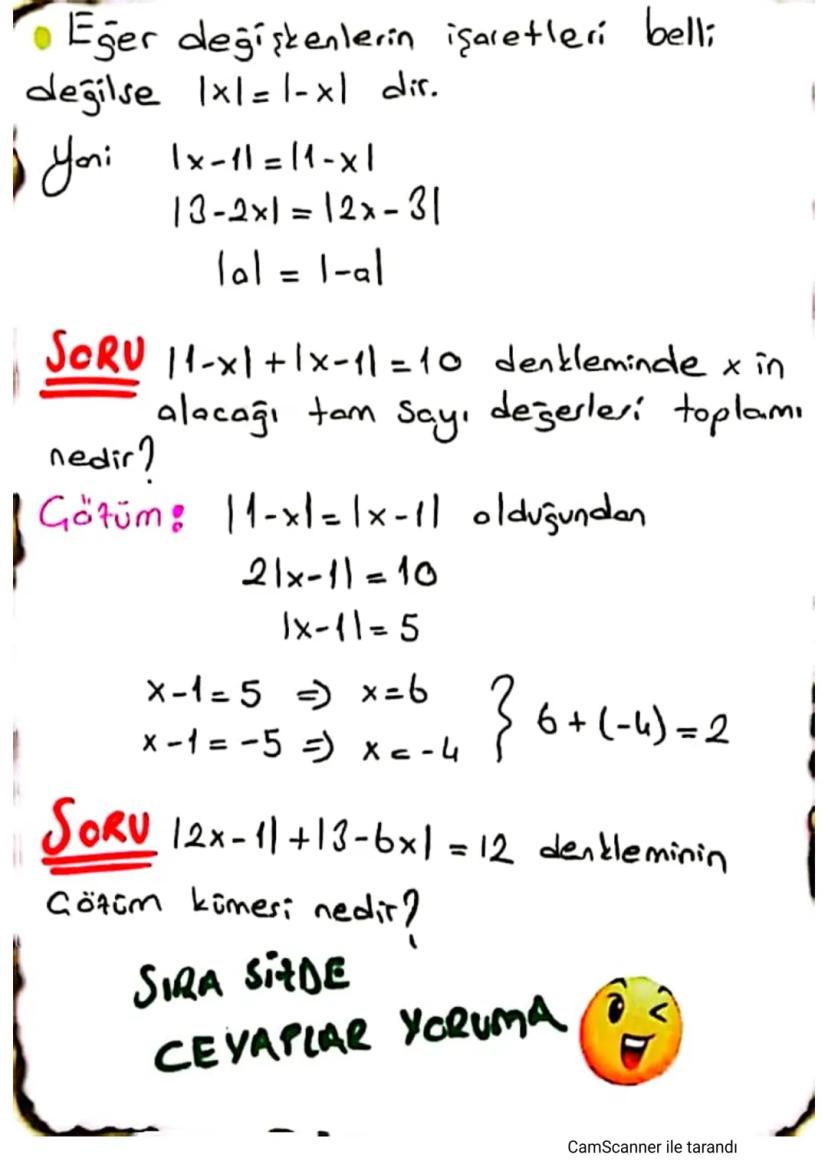 • Eğer değişkenlerin işaretleri belli
değilse |x| = |-x| dir.
Yani |x-1| = |1-x|
|3-2x| = |2x-3|
|a| = |-a|
SORU |1-x| + |x-1| = 10 denkleminde x in
alacağı tam sayı değerleri toplamı
nedir?
Çözüm: |1-x| = |x-1| olduğundan
2|x-1| = 10
|x-1| = 5
x-1 = 5 ⇒ x = 6
x-1 = -5 ⇒ x = -4 } 6 + (-4) = 2
SORU |2x-1| + |3-6x| = 12 denkleminin
Çözüm kümesi nedir?
SIRA SİZDE
CEVAPLAR YORUMA
CamScanner ile tarandı